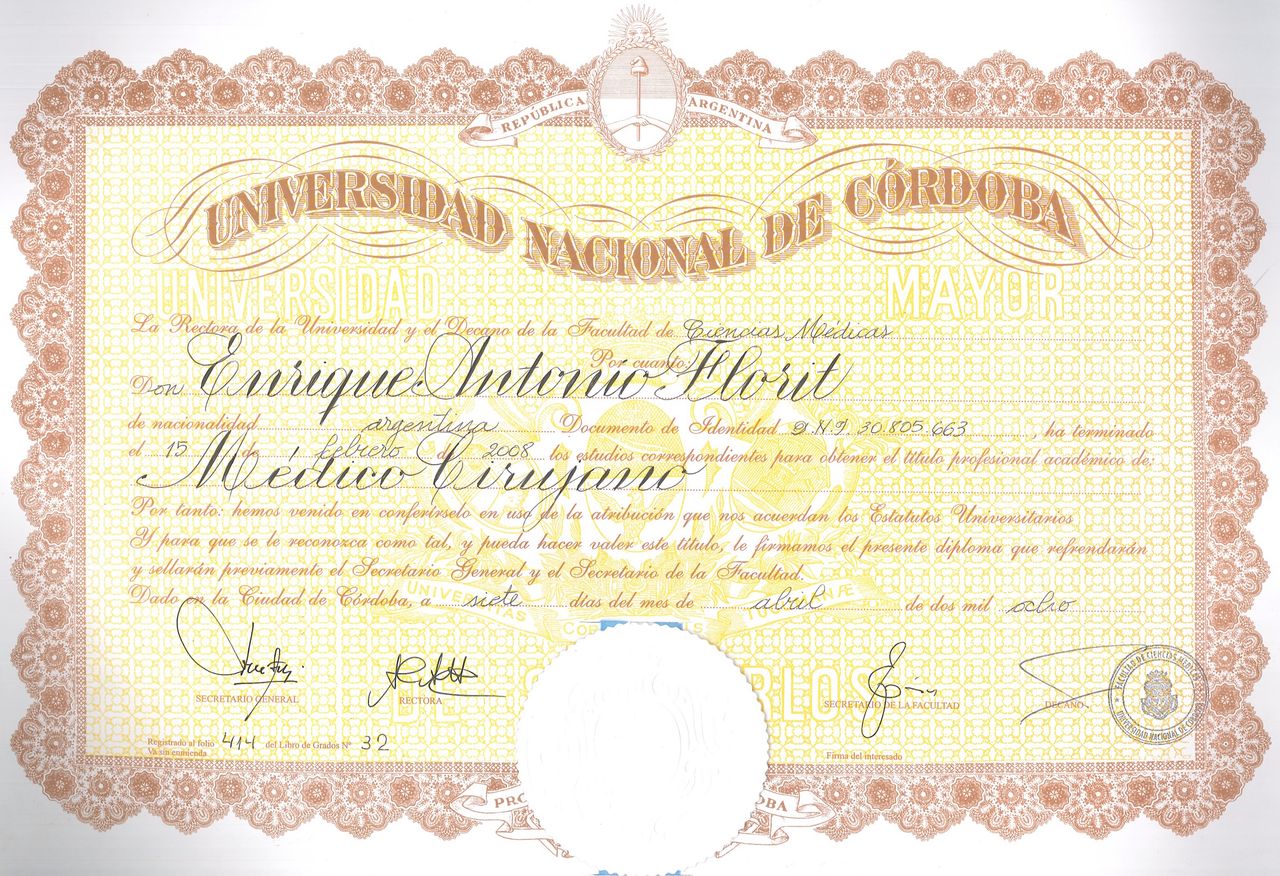 REPÚBLICA ARGENTINA
UNIVERSIDAD NACIONAL DE CÓRDOBA
UNIVERSIDAD MAYOR
La Rectora de la Universidad y el Decano de la Facultad de Ciencias Médicas
Por cuanto:
Don Enrique Antonio Florit
de nacionalidad argentina Documento de Identidad D.N.I. 30.805.663, ha terminado
el 15 de febrero de 2008 los estudios correspondientes para obtener el título profesional académico de:
Médico Cirujano
Por tanto: hemos venido en conferírselo en uso de la atribución que nos acuerdan los Estatutos Universitarios
Y para que se le reconozca como tal, y pueda hacer valer este título, le firmamos el presente diploma que refrendarán
y sellarán previamente el Secretario General y el Secretario de la Facultad.
Dado en la Ciudad de Córdoba, a siete días del mes de abril de dos mil ocho
SECRETARIO GENERAL
RECTORA
SECRETARIO DE LA FACULTAD
DECANO
FACULTAD DE CIENCIAS MÉDICAS
UNIVERSIDAD NACIONAL DE CÓRDOBA
Registrado al folio 414 del Libro de Grados N° 32
Va sin enmienda
Firma del interesado